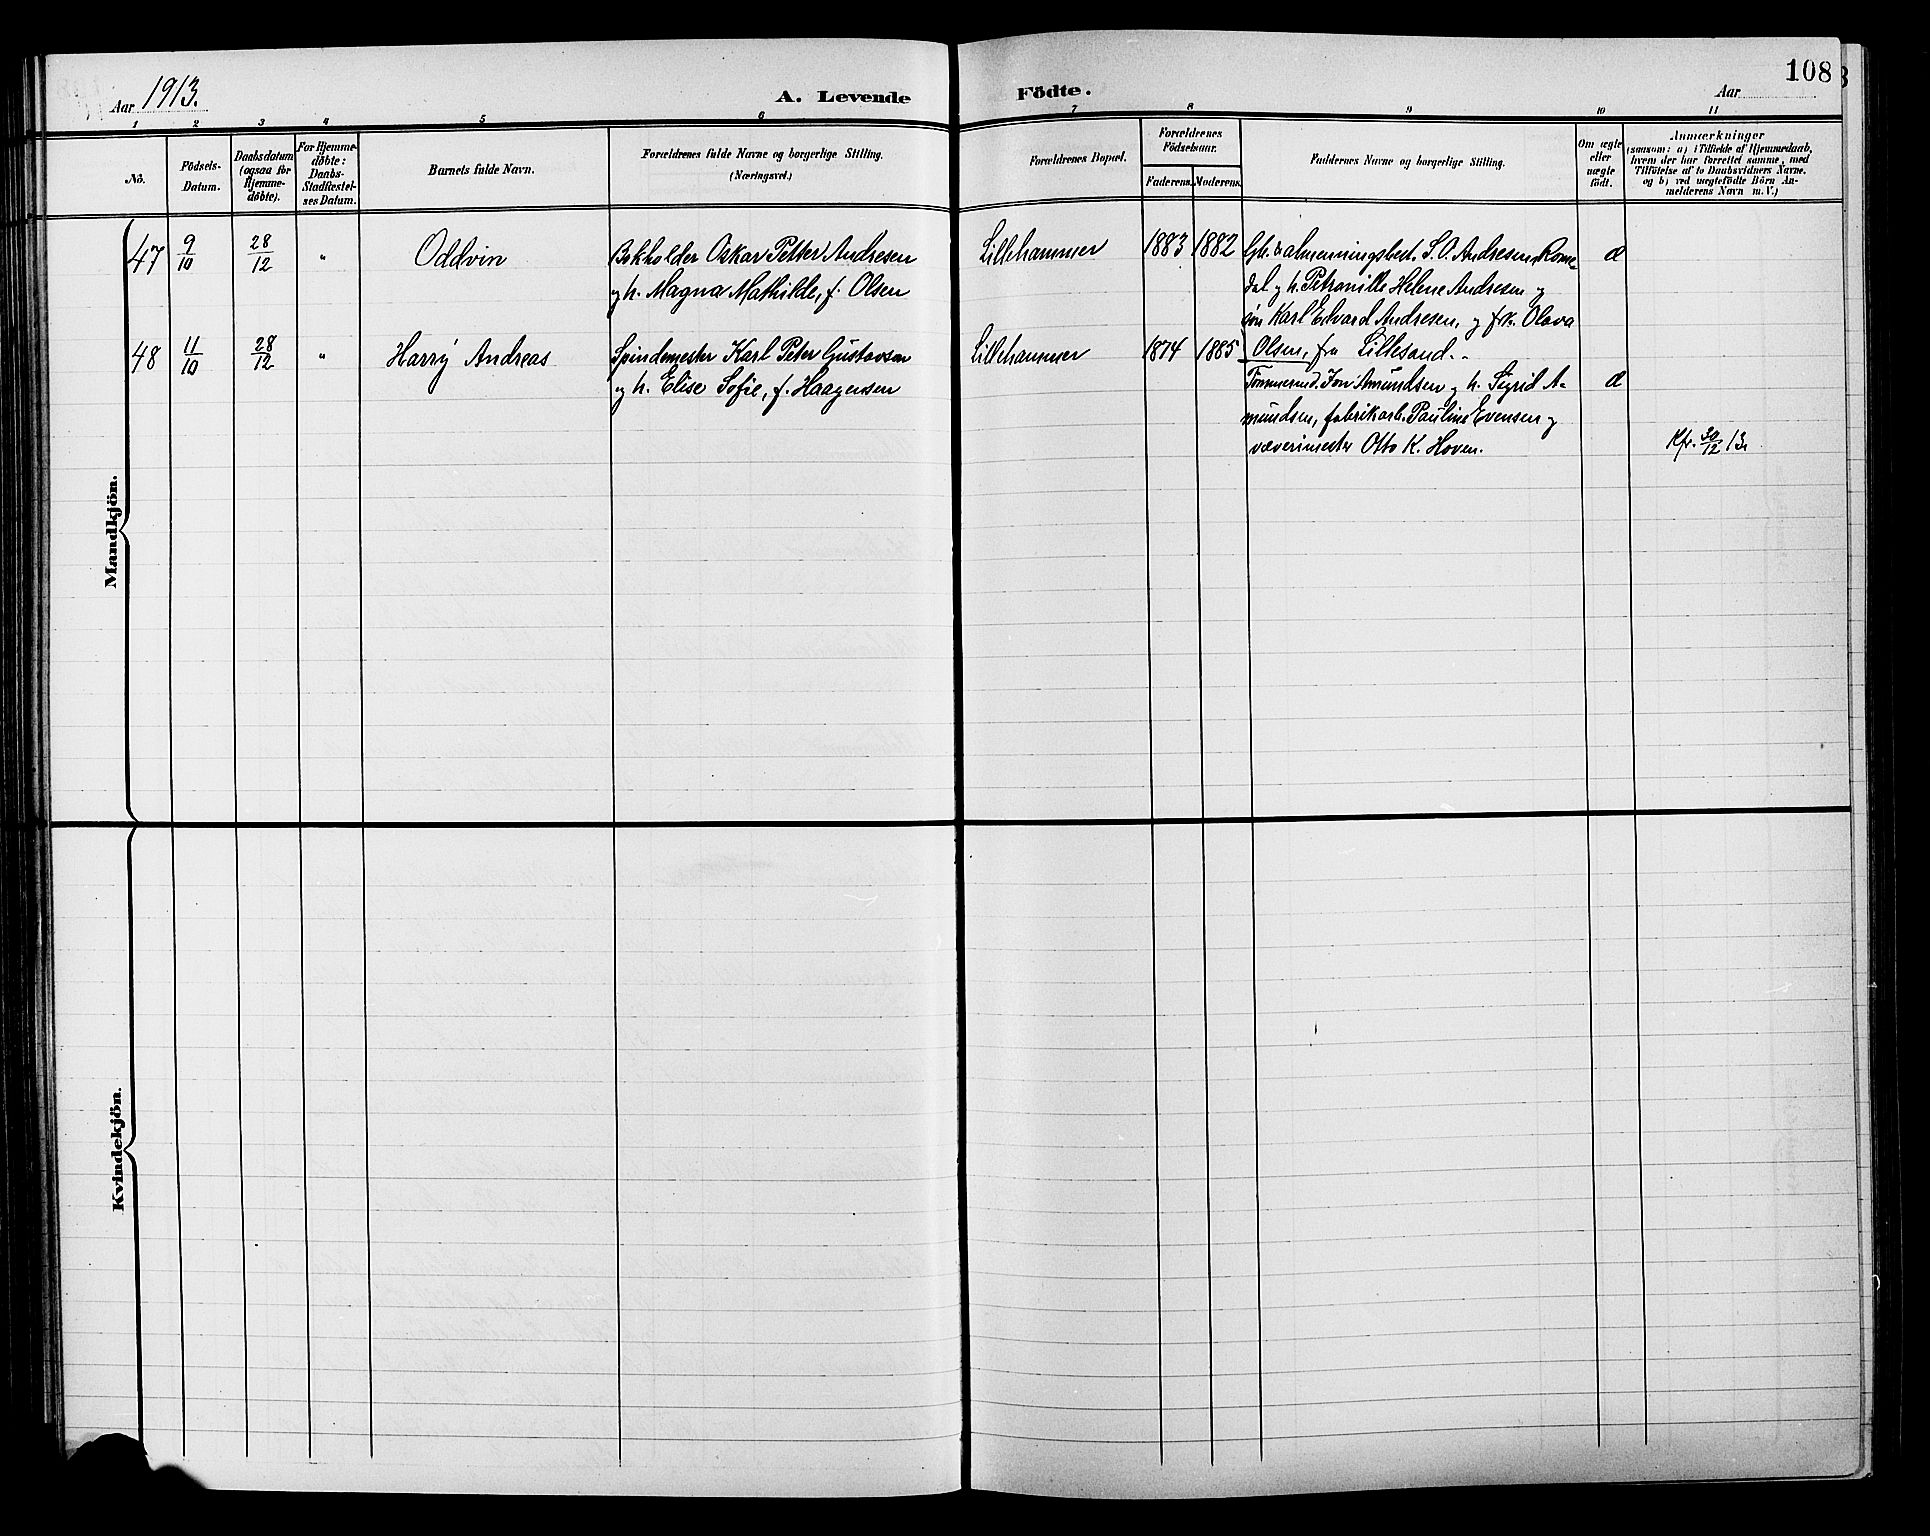 108
Aar 1913.
A. Levende Födte.
Aar
1 2 3 4 5 6 7 8 9 10 11
No.
Födsels-
Datum.
Daabsdatum
(ogsaa for
Hjemme-
døbte).
For Hjemme-
døbte:
Daabs-
Stadfæstel-
ses Datum.
Barnets fulde Navn.
Forældrenes fulde Navne og borgerlige Stilling.
(Næringsvei.)
Forældrenes Bopæl.
Forældrenes
Födselsaar.
Faderens. Moderens.
Faddernes Navne og borgerlige Stilling.
Om ægte
eller
uægte
födt.
Anmærkninger
(saasom: a) i Tilfælde af Hjemmedaab,
hvem der har forrettet samme, med
Tilföielse af to Daabsvidners Navne.
og b) ved uægtefödte Börn An-
melderens Navn m. V.)
Mandkjön.
47 9/10 28/12 " Oddvin
Bokholder Oskar Petter Andresen
og h. Magna Mathilde, f. Olsen
Lillehammer 1883 1882
Gbr. & almenningsbest. S. O. Andresen, Rome-
dal og h. Petronille Helene Andresen og
søn Karl Edvard Andresen, og frk. Olava
Olsen, fra Lillesand.
48 11/10 28/12 " Harry Andreas
Spindemester Karl Peter Gustavsen
og h. Elise Sofie, f. Haagensen
Lillehammer 1874 1885
Jon Amundsen og h. Sigrid A-
mundsen, fabrikarb. Pauline Evensen og
væverimester Otto K. Hoven.
Kfr. 30/12 13.
Kvindekjön.